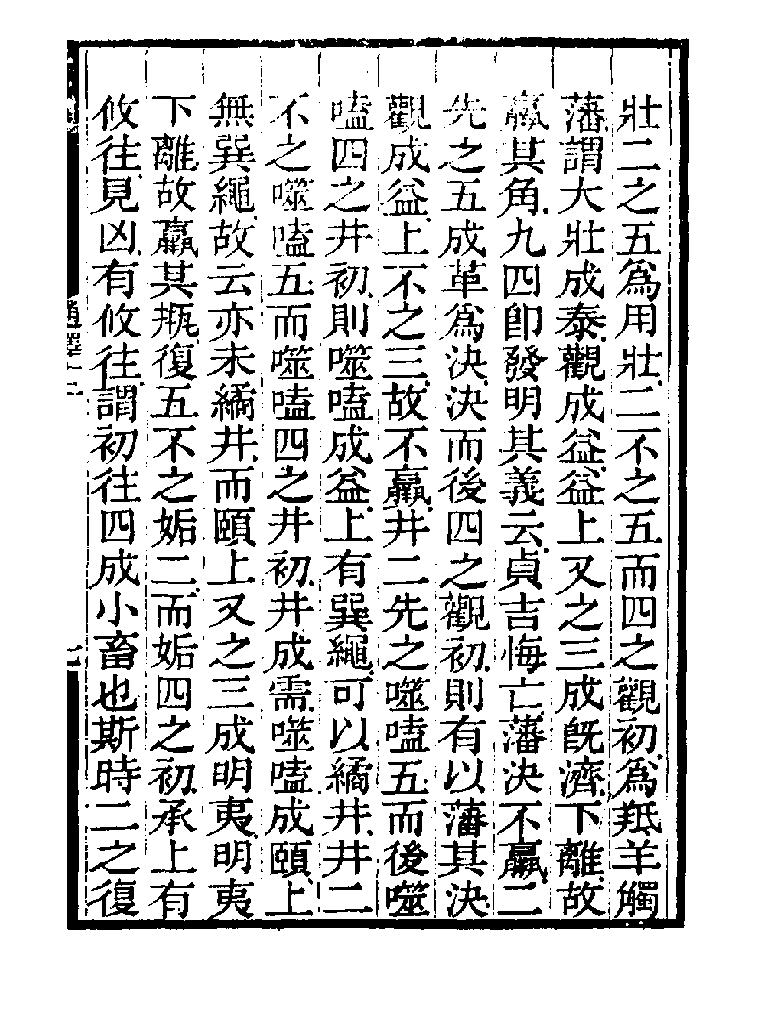 壯二之五爲用壯二不之五而四之觀初爲羝羊觸
藩謂大壯成泰觀成益益上又之三成旣濟下離故
羸其角九四卽發明其義云貞吉悔亡藩決不羸二
先之五成革爲决决而後四之觀初則有以藩其決
觀成益上不之三故不羸井二先之噬嗑五而後噬
嗑四之井初則噬嗑成益上有巽繩可以繘井井二
不之噬嗑五而噬嗑四之井初井成需噬嗑成頤上
無巽繩故云亦未繘井而頤上又之三成明夷明夷
下離故羸其瓶復五不之姤二而姤四之初承上有
攸往見凶有攸往謂初往四成小畜也斯時二之復
通釋十二
七